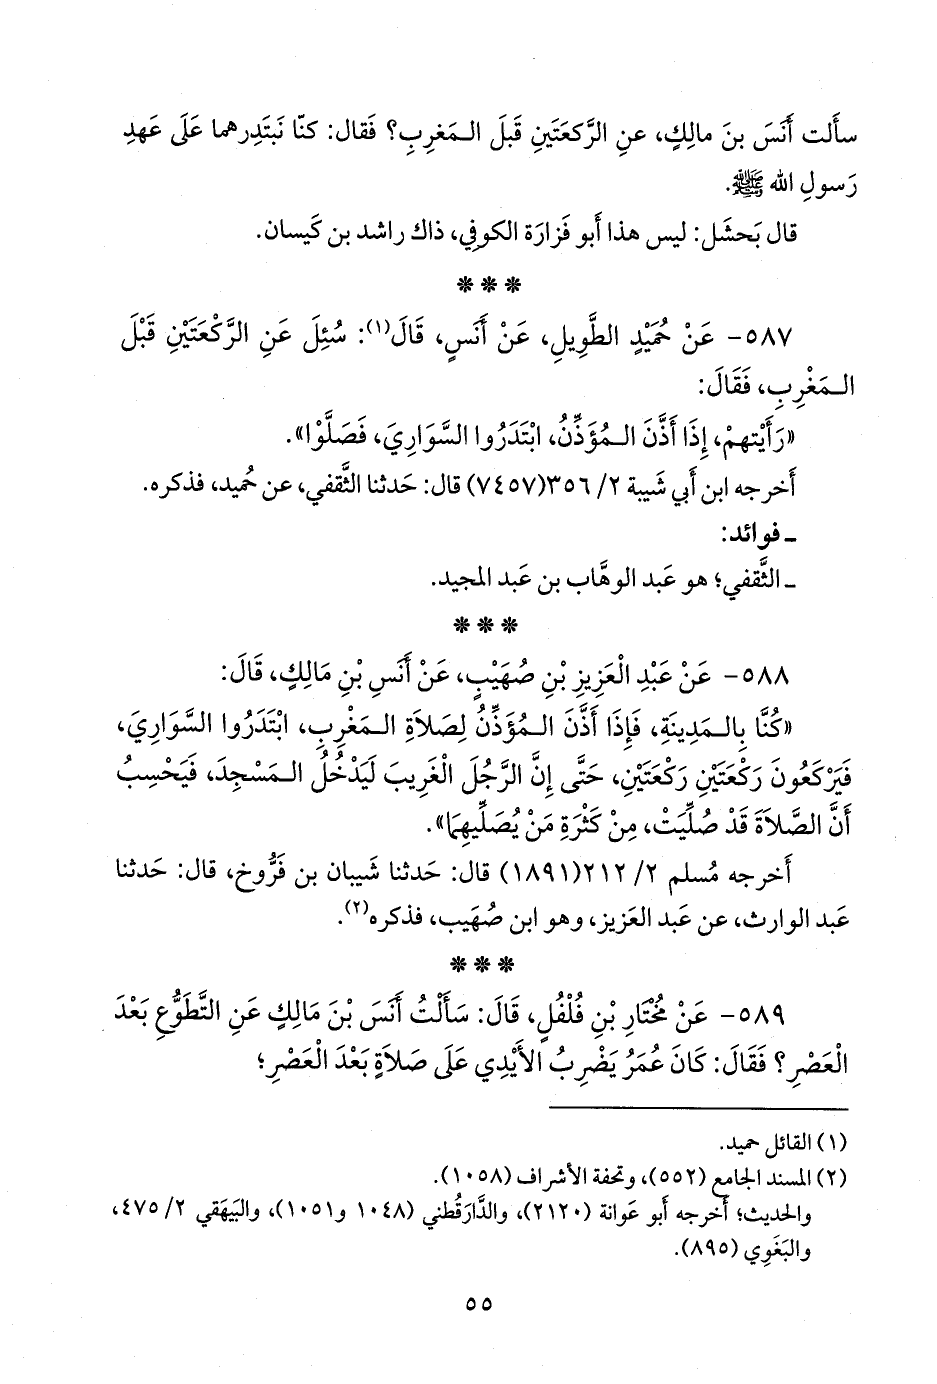 سأَلت أَنَسَ بنَ مالِكٍ، عنِ الرَّكعَتَينِ قَبلَ المَغربِ؟ فَقال: كنّا نَبتَدِرهما عَلَى عَهدِ
رَسولِ الله ﷺ.
قال بَحشَل: ليس هذا أَبو فَزارَة الكوفِي، ذاك راشد بن كَيسان.
* * *
٥٨٧- عَنْ حُمَيْدٍ الطَّوِيلِ، عَنْ أَنَسٍ، قَالَ(١): سُئِلَ عَنِ الرَّكْعَتَيْنِ قَبْلَ
المَغْرِبِ، فَقَالَ:
«رَأَيْتهمْ، إِذَا أَذَّنَ المُؤَذِّنُ، ابْتَدَرُوا السَّوَارِيَ، فَصَلَّوْا».
أَخرجه ابن أَبي شَيبة ٢/ ٣٥٦(٧٤٥٧) قال: حَدثنا الثَّقفي، عن حُميد، فذكره.
ـ فوائد:
ـ الثَّقفي؛ هو عَبد الوهَّاب بن عَبد المجيد.
* * *
٥٨٨- عَنْ عَبْدِ الْعَزِيزِ بْنِ صُهَيْبٍ، عَنْ أَنَسِ بْنِ مَالِكٍ، قَالَ:
«كُنَّا بِالمَدِينَةِ، فَإِذَا أَذَّنَ المُؤَذِّنُ لِصَلاَةِ المَغْرِبِ، ابْتَدَرُوا السَّوَارِيَ،
فَيَرْكَعُونَ رَكْعَتَيْنِ رَكْعَتَيْنِ، حَتَّى إِنَّ الرَّجُلَ الْغَرِيبَ لَيَدْخُلُ المَسْجِدَ، فَيَحْسِبُ
أَنَّ الصَّلاَةَ قَدْ صُلِّيَتْ، مِنْ كَثْرَةِ مَنْ يُصَلِّيهِمَا».
أَخرجه مُسلم ٢/ ٢١٢(١٨٩١) قال: حَدثنا شَيبان بن فَرُّوخ، قال: حَدثنا
عَبد الوارث، عن عَبد العَزيز، وهو ابن صُهَيب، فذكره(٢).
* * *
٥٨٩- عَنْ مُخْتَارِ بْنِ فُلْفُلٍ، قَالَ: سَأَلْتُ أَنَسَ بْنَ مَالِكٍ عَنِ التَّطَوُّعِ بَعْدَ
الْعَصْرِ؟ فَقَالَ: كَانَ عُمَرُ يَضْرِبُ الأَيْدِي عَلَى صَلاَةٍ بَعْدَ الْعَصْرِ؛
(١) القائل حميد.
(٢) المسند الجامع (٥٥٢)، وتحفة الأشراف (١٠٥٨).
والحديث؛ أَخرجه أَبو عَوانة (٢١٢٠)، والدَّارَقُطني (١٠٤٨ و١٠٥١)، والبَيهَقي ٢/ ٤٧٥،
والبَغَوي (٨٩٥).
٥٥